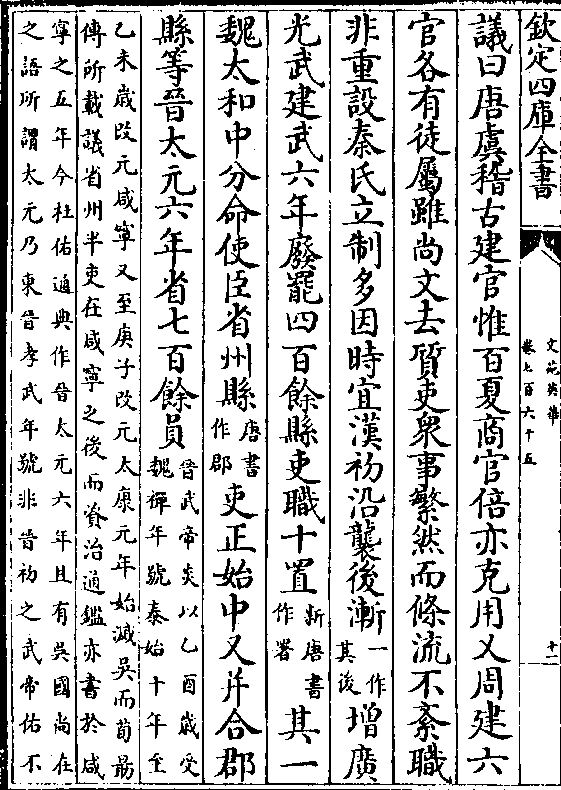 欽定四庫全書
文苑英華
卷七百六十五
十一
議曰唐虞稽古建官惟百夏商官倍亦克用乂周建六
官各有徒屬雖尚文去質吏衆事繁然而條流不紊職
非重設秦氏立制多因時宜漢初沿襲後漸一作其後增廣
光武建武六年廢罷四百餘縣吏職十置新唐書作署其一
魏太和中分命使臣省州縣唐書作郡吏正始中又并合郡
縣等晉太元六年省七百餘員晉武帝炎以乙酉嵗受魏禪年號泰始十年至
乙未嵗改元咸寧又至庚子改元太康元年始滅吳而荀勗
傳所載議省州半吏在咸寧之後而資治通鑑亦書於咸
寧之五年今杜佑通典作晉太元六年且有吳國尚在
之語所謂太元乃東晉孝武年號非晉初之武帝佑不